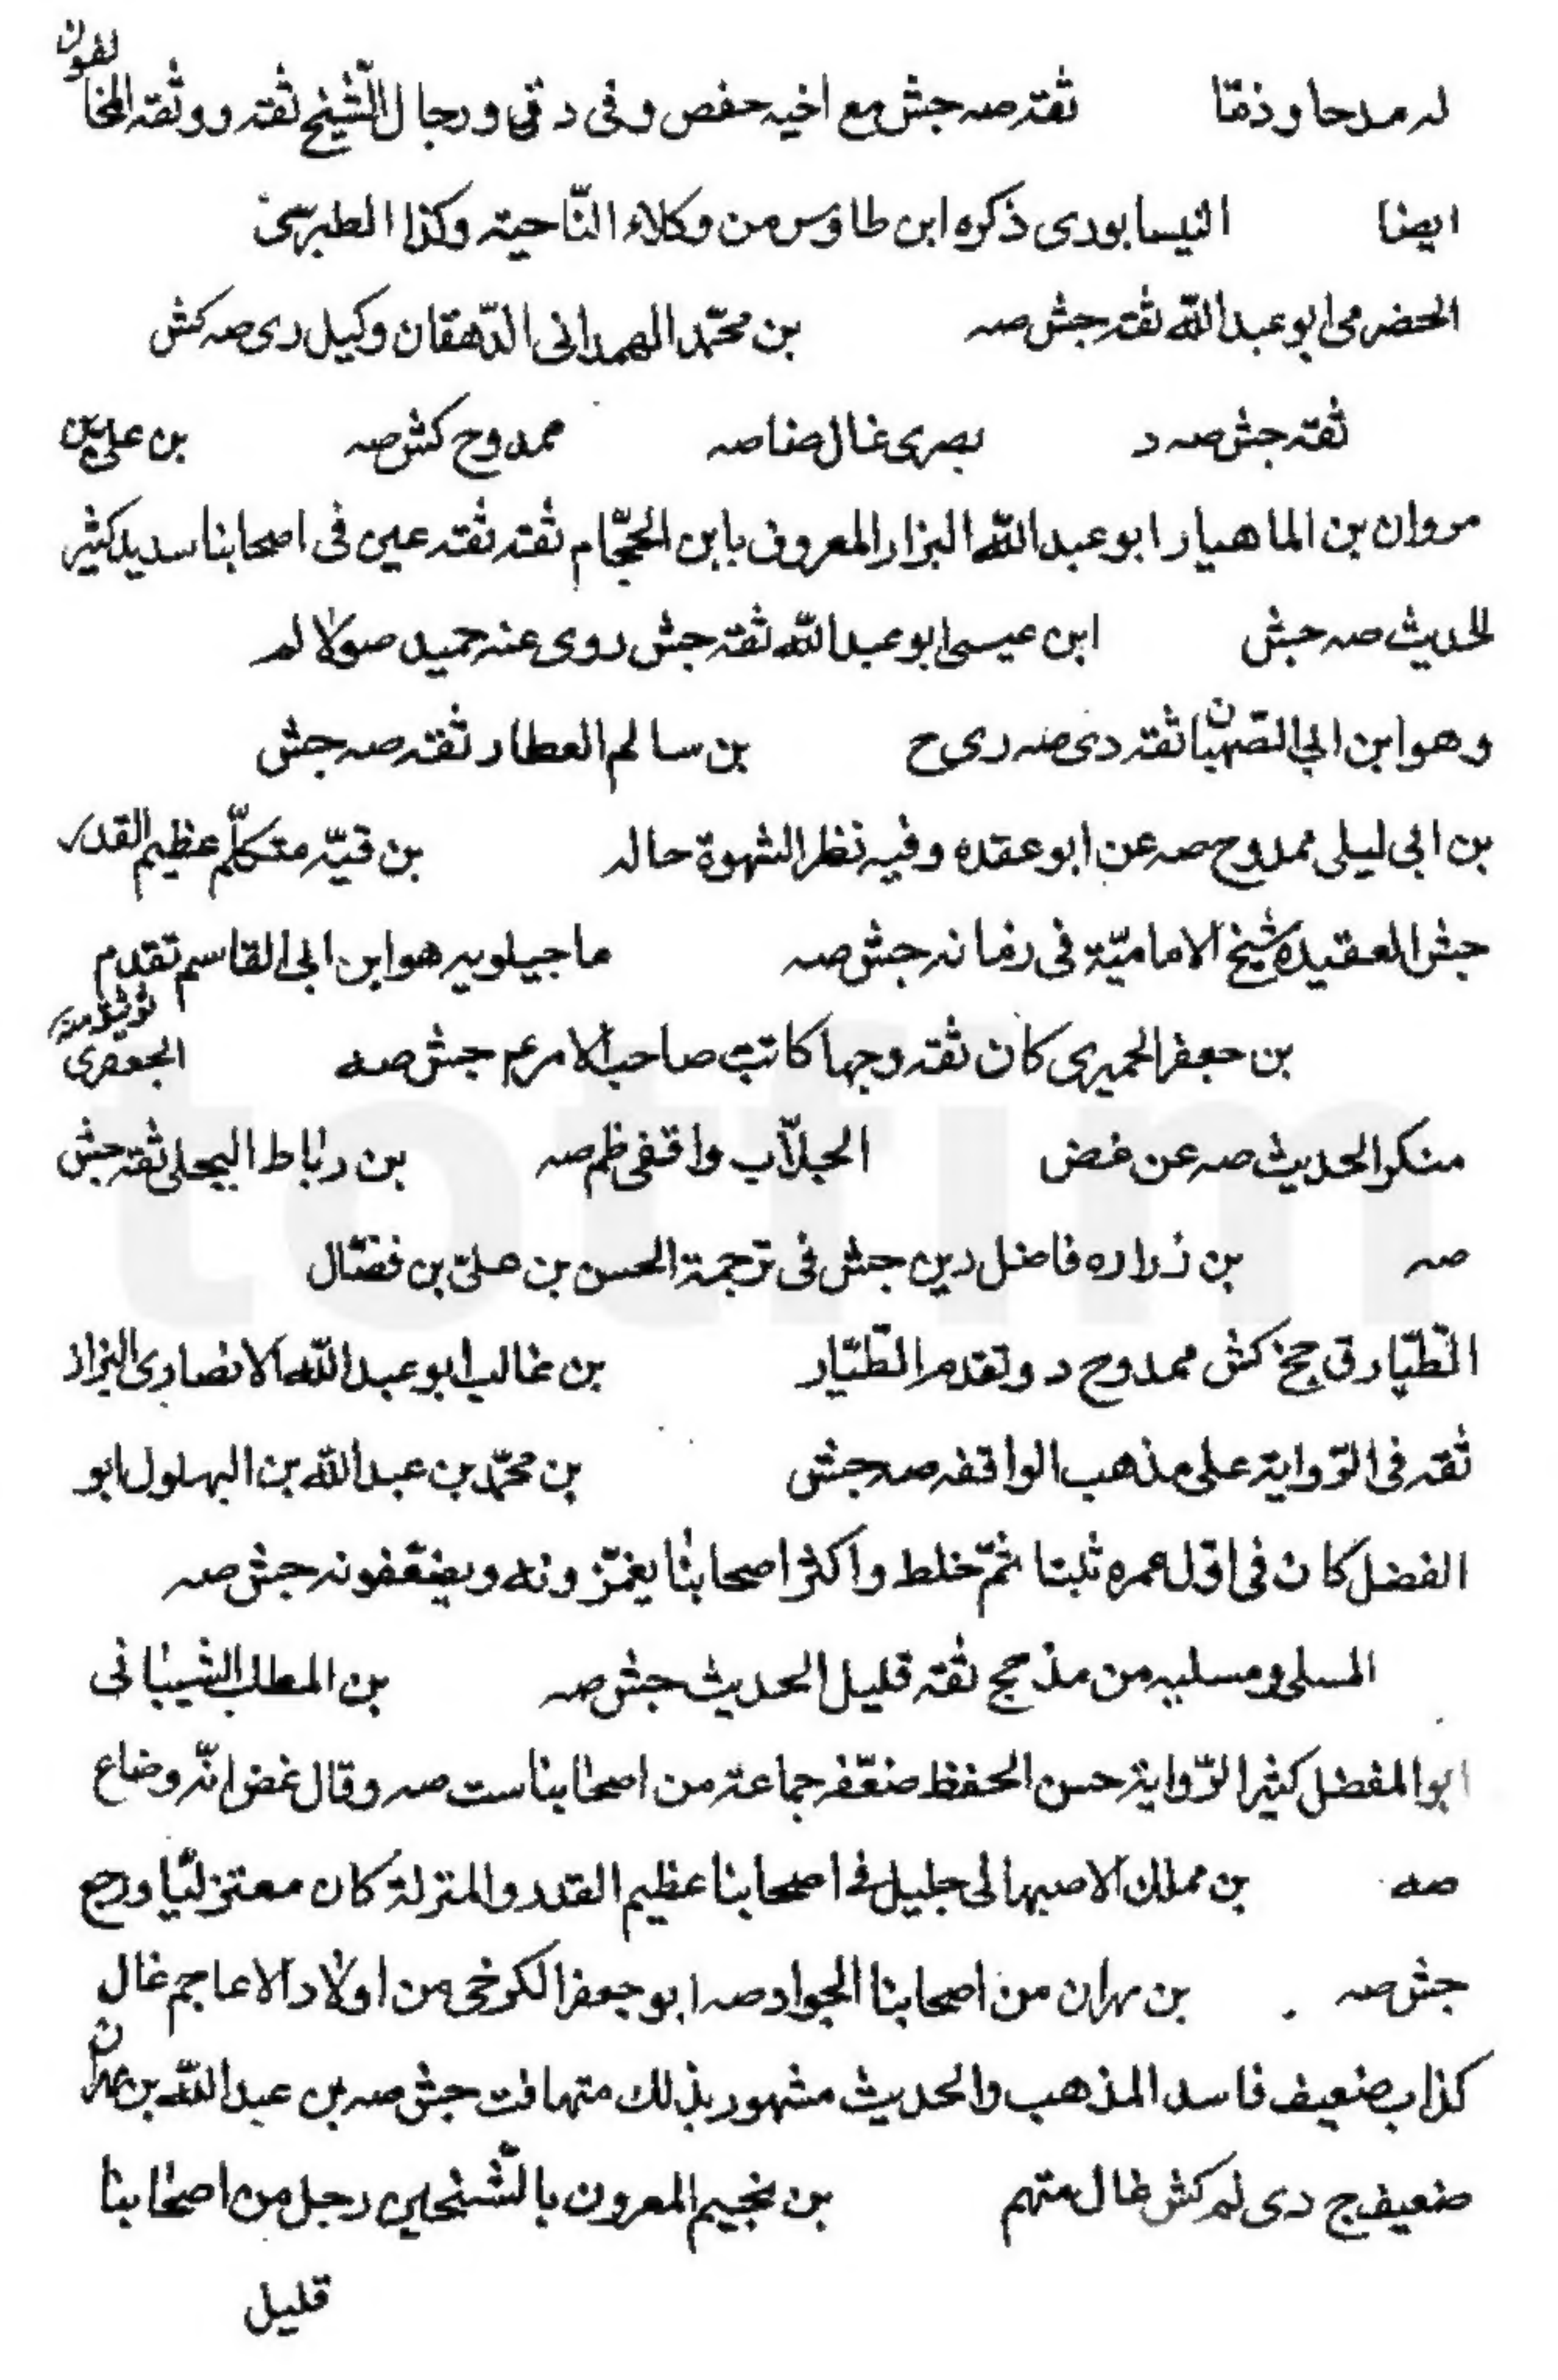 له مدحا وذمّا ثقته صه جش مع اخيه حفص وفى د قى ورجال الشّيخ ثقته ووثقه المخالفون
ايضا النيسابورى ذكره ابن طاوس من وكلاء النّاحية وكذا الطبرسى
الحضرمى ابو عبد اللّه ثقته جش صه بن محمّد الهمدانى الدّهقان وكيل رى صه كش
ثقته جش صه د بصرى غال ضا صه ممدوح كش صه بن على بن
مروان بن الماهيار ابو عبد اللّه البزار المعروف بابن الحجّام ثقته ثقته عين فى اصحابنا سديد كثير
الحديث صه جش ابن عيسى ابو عبد اللّه ثقته جش روى عنه حميد صولا لم
وهو ابن ابى الصّهبان ثقته دى صه رى ح بن سالم العطار ثقته صه جش
بن ابى ليلى ممدوح صه عن ابو عقده وفيه نظر الشهوة حاله بن قبّه متكلّم عظيم القدر
جش العقيده شيخ الاماميّة فى زمانه جش صه ماجيلويه هو ابن ابى القاسم تقدم
بن جعفر الحميرى كان ثقته وجها كاتب صاحب الامر عم جش صه الجعفرى
منكر الحديث صه عن غض الجلّاب واقفى ظم صه بن رباط البجلى ثقته جش
صه بن زراره فاضل دين جش فى ترجمة الحسن بن علىّ بن فضّال
الطّيّار قى جخ كش ممدوح د وتقدم الطّيّار بن غالب ابو عبد اللّه الانصارى البزاز
ثقته فى الرّواية على مذهب الواقفه صه جش بن محمّد بن عبد اللّه بن البهلول ابو
الفضل كان فى اوّل عمره ثبتا ثمّ خلط واكثر اصحابنا يغمّزونه ويضعّفونه جش صه
المسلى ومسليه من مذحج ثقة قليل الحديث جش صه بن المطلب الشيبانى
ابو المفضل كثير الرّواية حسن الحفظ ضعّفه جماعة من اصحابنا ست صه وقال غض انّه وضاع
صه بن مملك الاصبهانى جليل فى اصحابنا عظيم القدر والمنزلة كان معتزليّا ورجع
جش صه بن مهران من اصحابنا الجواد صه ابو جعفر الكرخى من اولاد الاعاجم غال
كذاب ضعيف فاسد المذهب والحديث مشهور بذلك متهافت جش صه بن عبد اللّه بن مهران
ضعيف ج دى لم كش غال متهم بن نجيم المعرون رجل من اصحابنا
قليل